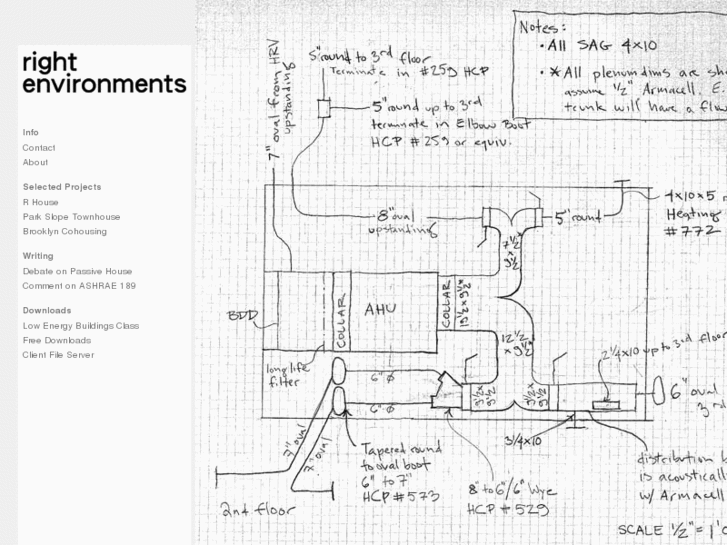 right
environments
Info
Contact
About
Selected Projects
R House
Park Slope Townhouse
Brooklyn Cohousing
Writing
Debate on Passive House
Comment on ASHRAE 189
Downloads
Low Energy Buildings Class
Free Downloads
Client File Server
7" oval from HRV
upstanding
5" round to 3rd floor
Terminate in #259 HCP
5" round up to 3rd
terminate in Elbow Boot
HCP #259 or equiv.
Notes:
• All SAG 4x10
• * All plenum dims are
assume 1/2" Armacell. E.
trunk will have a
8" oval
upstanding
5" round
4x10x5
Heating
#772
7 1/2
x
9 1/2
BDD
COLLAR
AHU
COLLAR
19 1/2 x 9 1/2
12 1/2
x 9 1/2
2 1/4 x10 up to 3rd floor
long life
filter
6" Ø
6" Ø
3 1/2 x
9 1/2
3 1/2 x
9 1/2
6" oval
3 rd
7" oval
7" oval
3/4x10
Tapered round
to oval boot
6" to 7"
HCP #573
8" to 6"/6" Wye
HCP #529
distribution
is acoustically
w/ Armacell
2nd floor
SCALE 1/2" = 1'